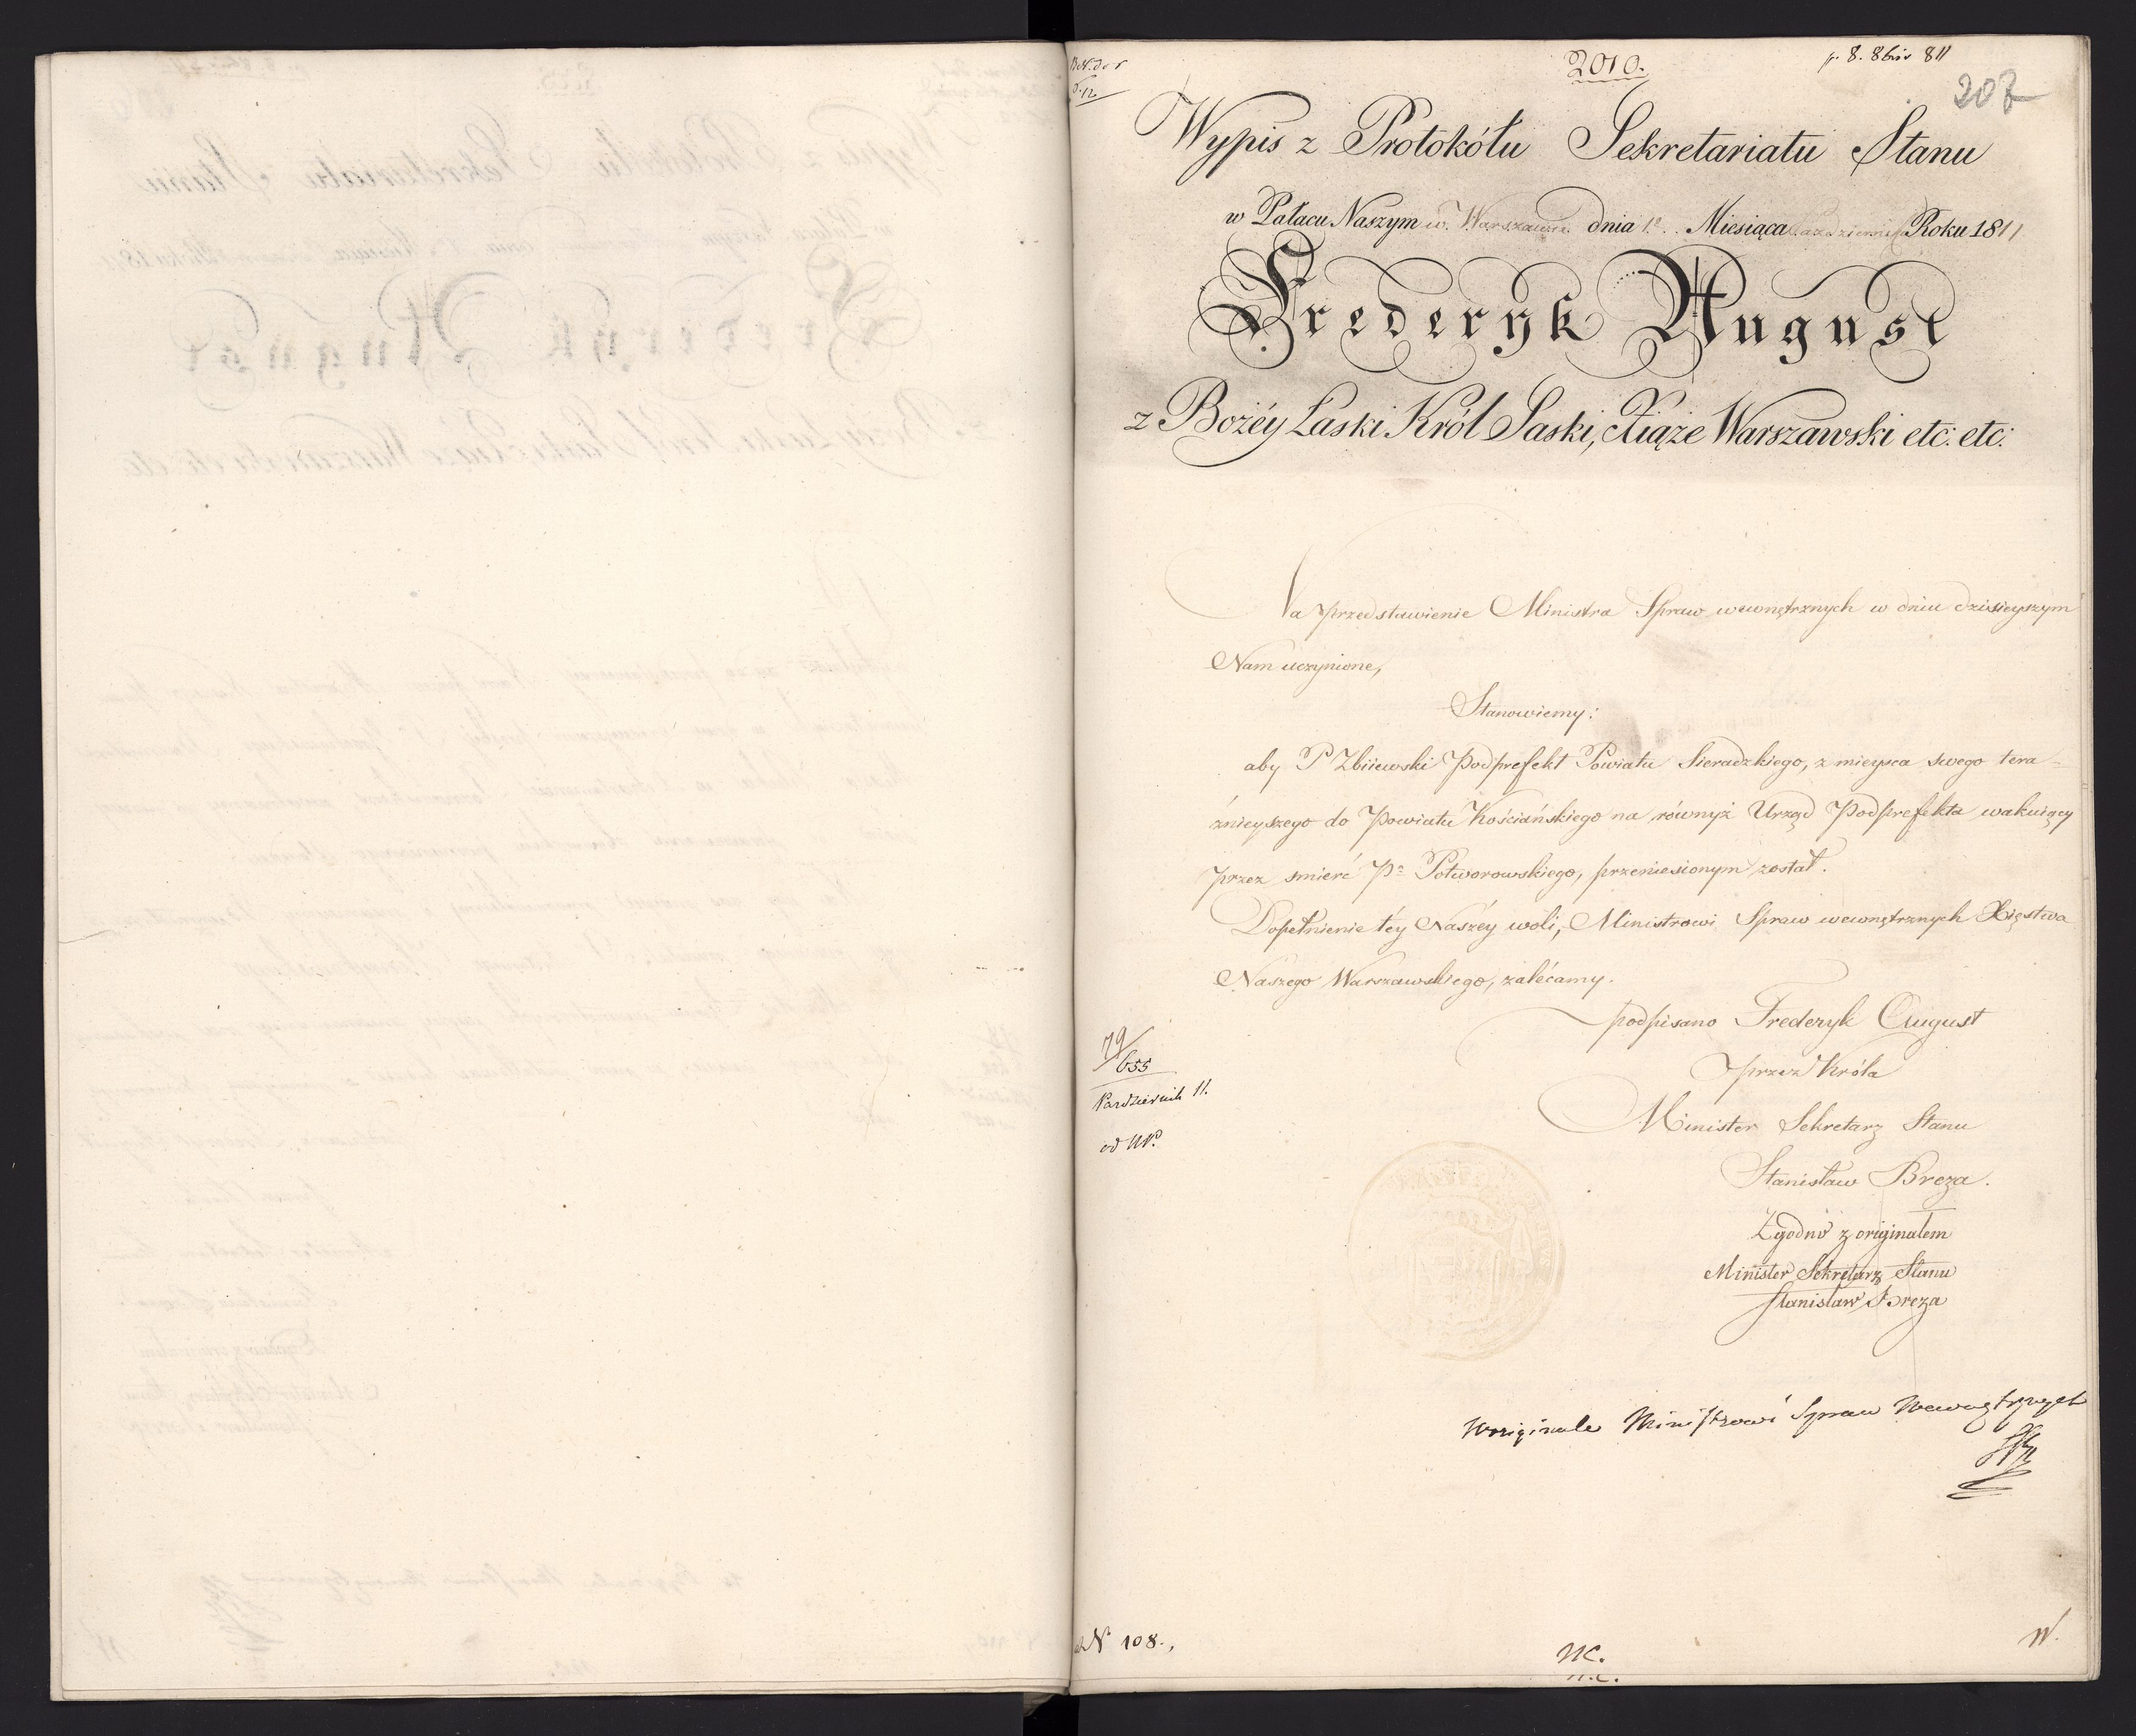 2010.
207
Wypis z Protokółu Sekretariatu Stanu
w Pałacu Naszym w Warszawie dnia 1º Miesiąca Października Roku 1811
Frederyk August
z Bożéy Łaski Król Saski, Xiąże Warszawski etc: etc:
Na przedstawienie Ministra Spraw wewnętrznych w dniu dzisieyszym
Nam uczynione,
Stanowiemy:
aby P Zbiiewski Podprefekt Powiatu Sieradzkiego, z mieysca swego tera-
źnieyszego do Powiatu Kościańskiego na równyż Urząd Podprefekta wakuiący
przez smierć Pa Potworowskiego, przeniesionym został.
Dopełnienie téy Naszéy woli, Ministrowi Spraw wewnętrznych Xięstwa
Naszego Warszawskiego, zalécamy.
podpisano Frederyk August
przez Króla
Minister Sekretarz Stanu
Stanisław Breza.
Zgodno z originałem
Minister Sekretarz Stanu
Stanisław Breza
79/655
Pazdziernik 11.
W originale Ministrowi Spraw Wewnętrznych
N 108.,